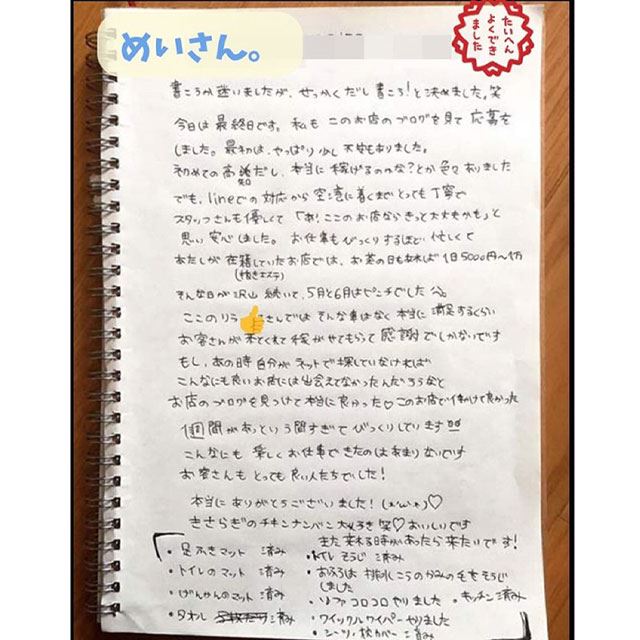 めいさん。
たいへん
よくでき
ました
書こうか迷いましたが、せっかくだし書こう!と決めました。笑
今日は最終日です。私もこのお店のブログを見て応募を
しました。最初は、やっぱり少し不安もありました。
初めての高知だし、本当に稼げるのかな?とか色々ありました
でも、lineでの対応から空港に着くまでとっても丁寧で
スタッフさんも優しくて「あ!ここのお店ならきっと大丈夫かも」と
思い安心しました。お仕事もびっくりするほど忙しくて
わたしが在籍していたお店では、お茶の日も あれば 1日5000円〜1万
(抜きエステ)
そんな日が沢山続いて、5月と6月はピンチでした
ここのリラ さんではそんな事はなく本当に満足するくらい
お客さんが来てくれて稼がせてもらって感謝でしかないです
もし、あの時自分がネットで探していなければ
こんなにも良いお店には出会えてなかったんだろうなと
お店のブログを見つけて本当に良かった♡このお店で働けて良かった
1週間があっという間すぎてびっくりしています
こんなにも楽しくお仕事できたのはあまりないです
お客さんもとっても良い人たちでした!
本当にありがとうございました!(*'ω'*)♡
きさらぎのチキンナンバン大好き笑♡おいしいです
また来れる時があったら来たいです!
・足ふきマット 済み
・トイレそうじ 済み
・トイレのマット 済み
・おふろは排水こうのかみの毛をそうじ
しました
・げんかんのマット 済み
・ソファコロコロやりました ・キッチン済み
・タオル 済み
・クイックルワイパーやりました
・シーツ・枕カバー 済み